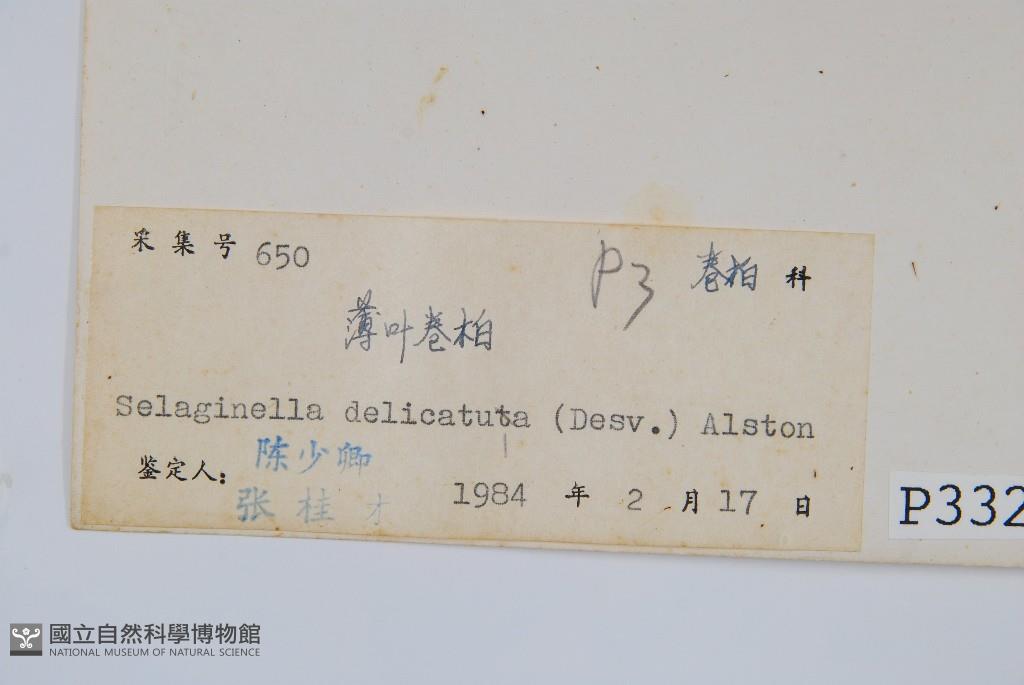 采集号 650
P3 卷柏 科
薄叶卷柏
Selaginella delicatuta (Desv.) Alston
鉴定人: 陈少卿
张桂才
1984 年 2 月 17 日
P332
國立自然科學博物館
NATIONAL MUSEUM OF NATURAL SCIENCE